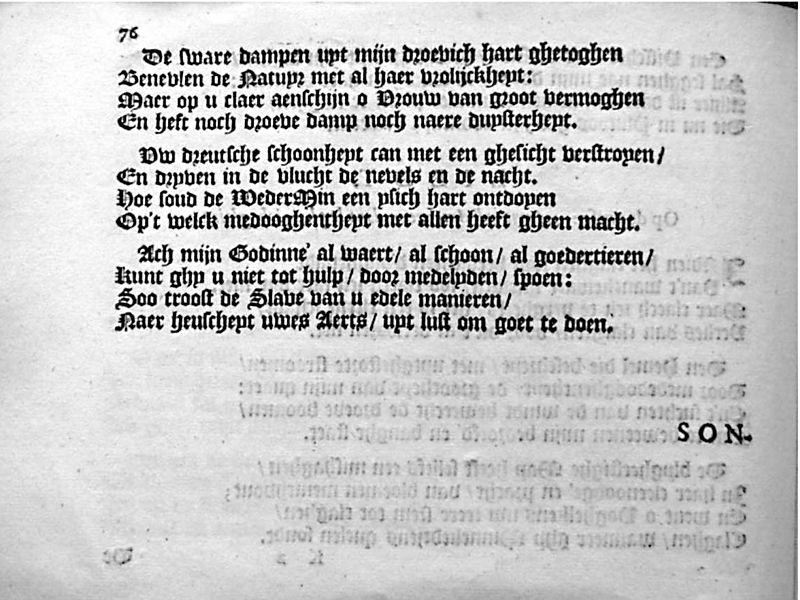 76
De sware dampen uyt mijn droevich hart ghetoghen
Benevlen de Natuyr met al haer vrolijckheyt:
Maer op u claer aenschijn o Vrouw van groot vermoghen
En heft noch droeve damp noch naere duysterheyt.
Uw vreutsche schoonheyt can met een ghesicht verstroyen/
En dryven in de vlucht de nevels en de nacht.
Hoe soud de WederMin een ysich hart ontdoyen
Op't welck medooghentheyt met allen heeft gheen macht.
Ach mijn Godinne' al waert/ al schoon/ al goedertieren/
Kunt ghy u niet tot hulp/ door medelyden/ spoen:
Soo troost de Slave van u edele manieren/
Naer heuscheyt uwes Aerts/ uyt lust om goet te doen.
SON-